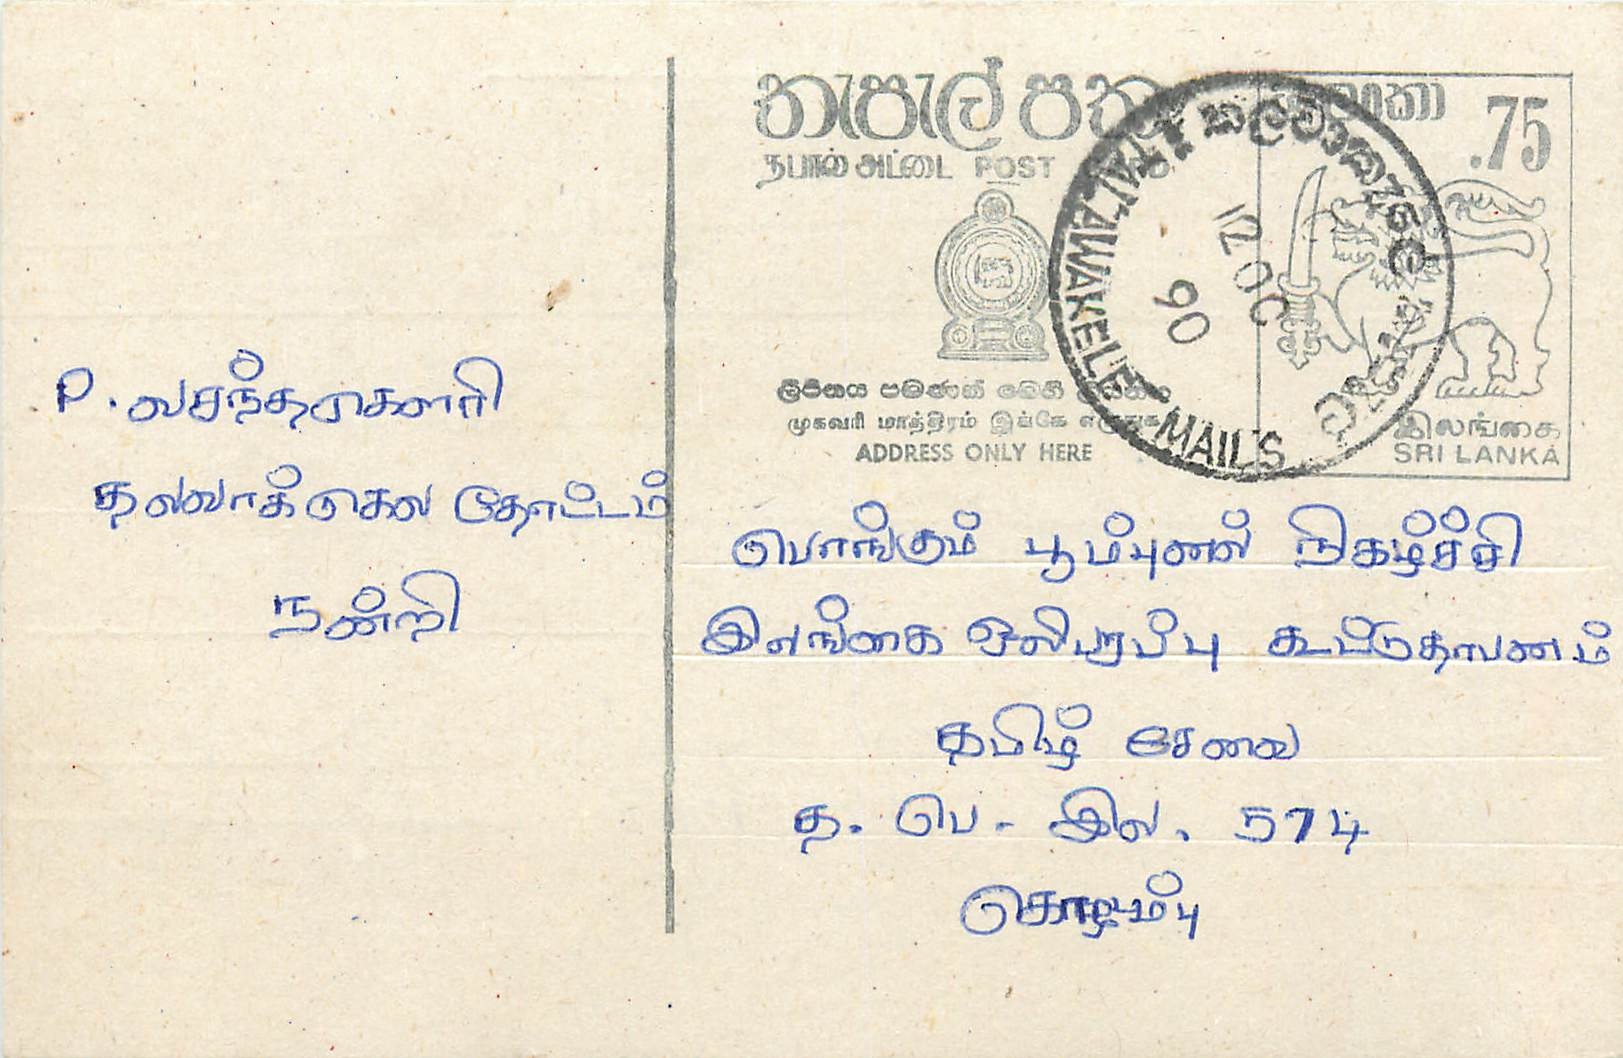 තැපැල් පත
நபால் அட்டை POST
.75
තලවාකැලේ
TALAWAKELE MAILS
12 OC
90
ලිපිනය පමණක් මෙහි
முகவரி மாத்திரம் இங்கே எழுதுக
ADDRESS ONLY HERE
இலங்கை
SRI LANKA
P. வசந்தமுகௌரி
தலவாக்கெல தோட்டம்
நன்றி
பொங்கும் பூம்புணல் நிகழ்ச்சி
இலங்கை ஒலிபரப்பு கூட்டுதாபணம்
தமிழ் சேவை
த. பெ - இல. 574
கொழும்பு